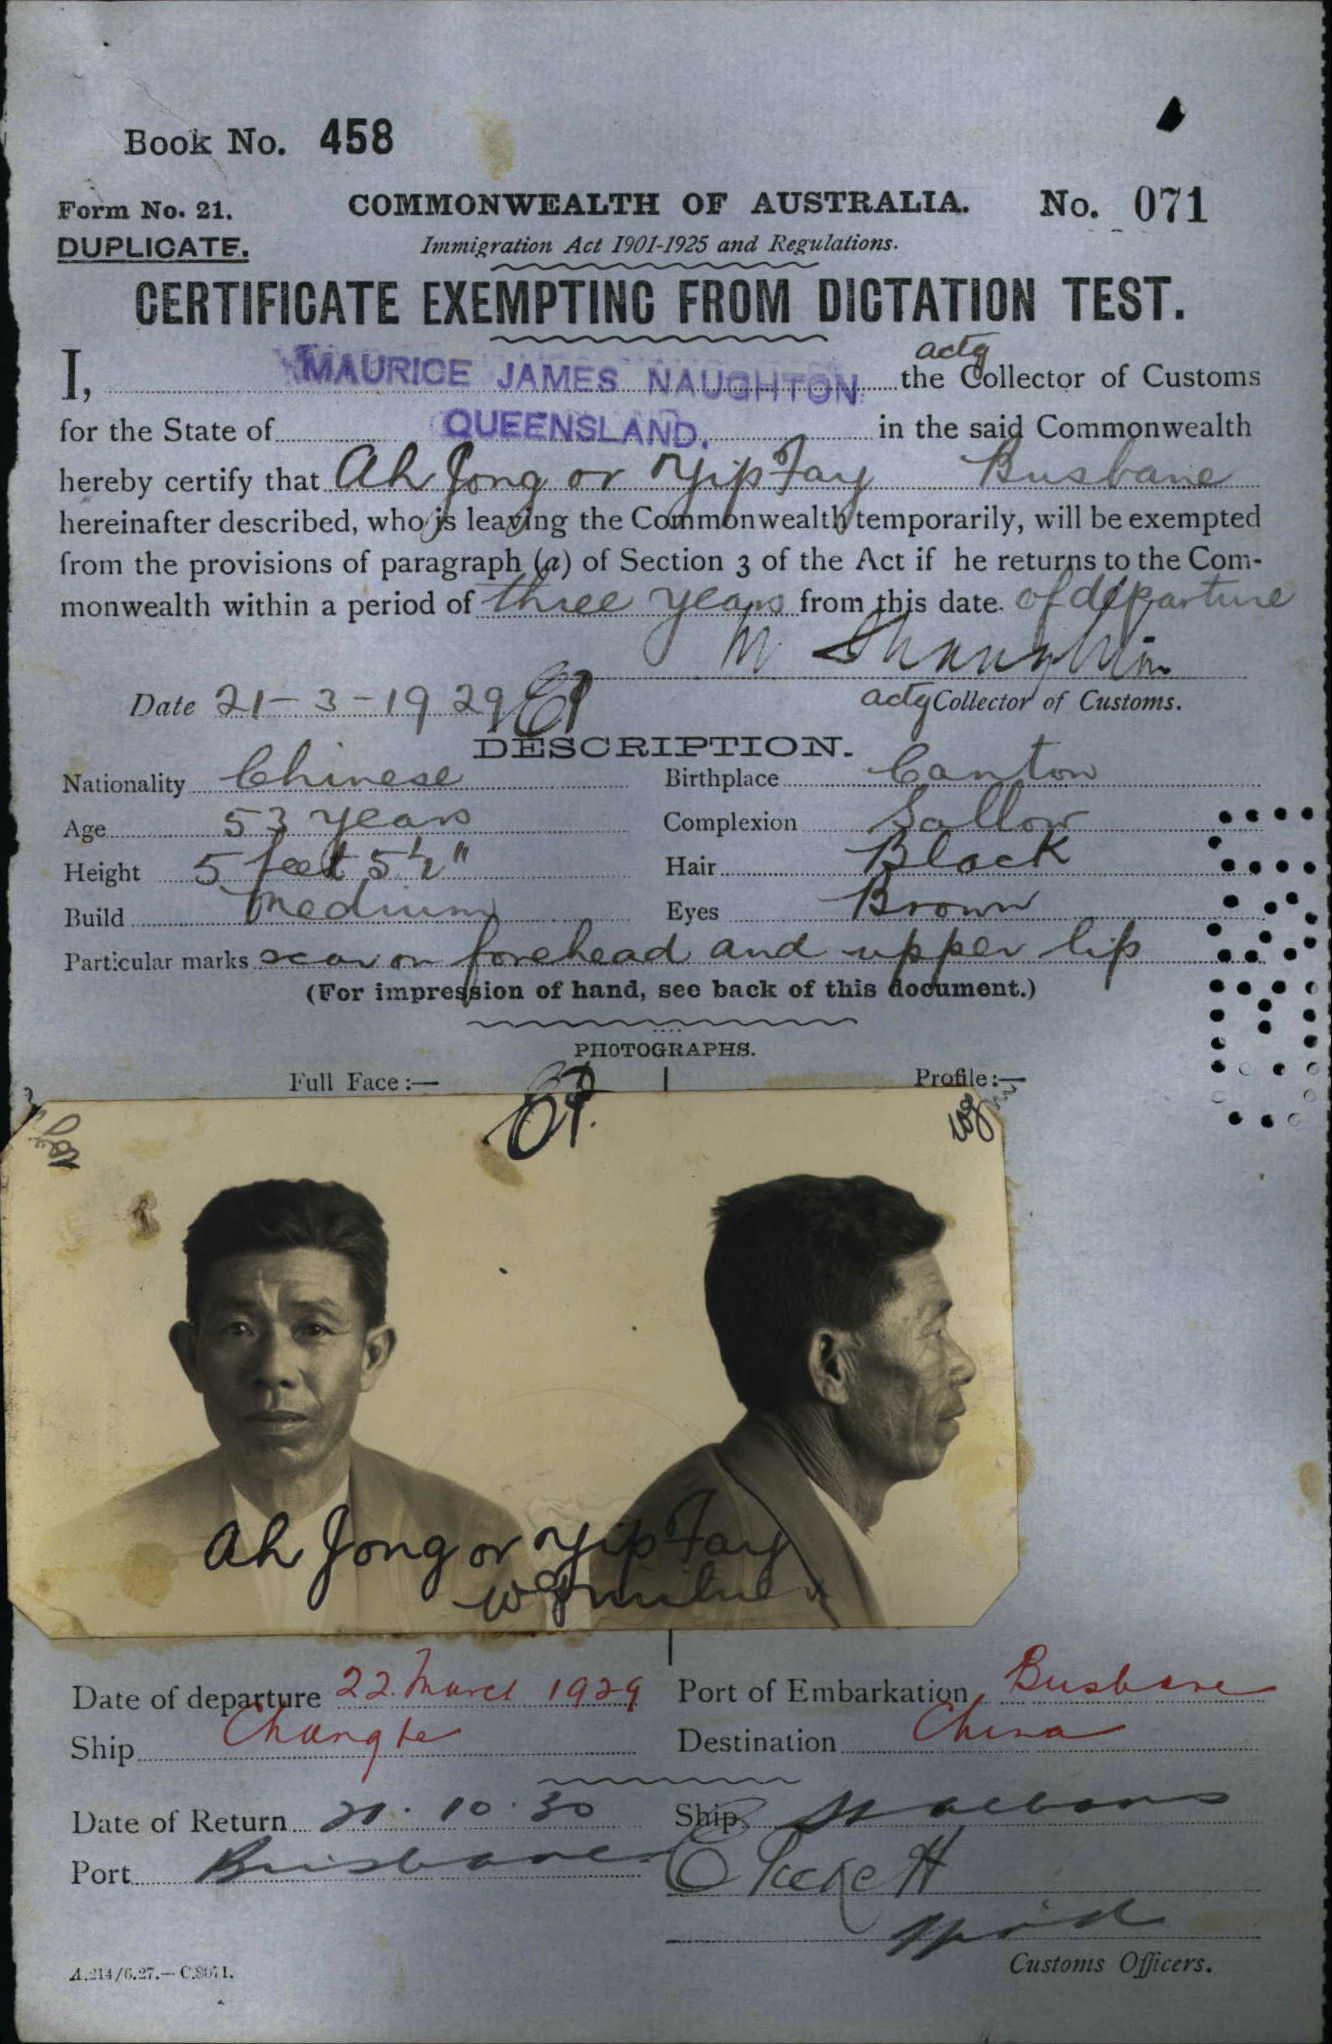 Book No. 458
Form No. 21. COMMONWEALTH OF AUSTRALIA. No. 071
DUPLICATE. Immigration Act 1901-1925 and Regulations.
CERTIFICATE EXEMPTING FROM DICTATION TEST.
I, MAURICE JAMES NAUGHTON the actg Collector of Customs
for the State of QUEENSLAND. in the said Commonwealth
hereby certify that Ah Jong or Yip Fay Brisbane
hereinafter described, who is leaving the Commonwealth temporarily, will be exempted
from the provisions of paragraph (a) of Section 3 of the Act if he returns to the Com-
monwealth within a period of three years from this date of departure
Date 21-3-1929 actg Collector of Customs.
DESCRIPTION.
Nationality Chinese Birthplace Canton
Age 53 years Complexion Sallow
Height 5 feet 5½" Hair Black
Build Medium Eyes Brown
Particular marks scar on forehead and upper lip
(For impression of hand, see back of this document.)
PHOTOGRAPHS.
Full Face:— Profile:—
Ah Jong or Yip Fay
Date of departure 22 March 1929 Port of Embarkation Brisbane
Ship Changte Destination China
Date of Return 21.10.30 Ship St Albans
Port Brisbane
Customs Officers.
A.214/6.27.—C.8071.